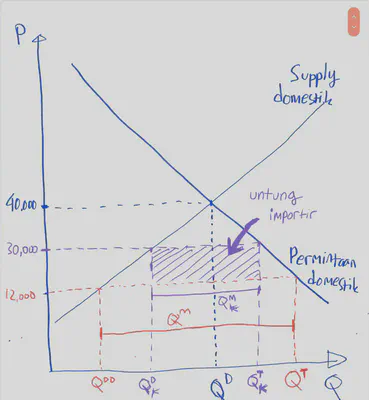 P
Supply
domestik
40,000
untung
importir
30,000
Permintaan
domestik
12,000
Q^M_K
Q^M
Q^DD
Q^D_K
Q^D
Q^T_K
Q^T
Q